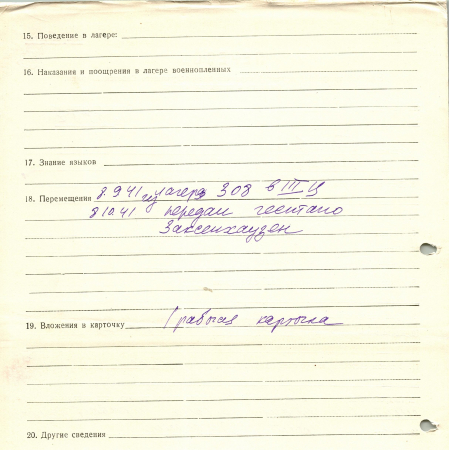 15. Поведение в лагере:
16. Наказания и поощрения в лагере военнопленных
17. Знание языков
18. Перемещения 8.9.41 из лагеря 308 в III Ц
8.10.41 передан гестапо
Заксенхаузен
19. Вложения в карточку 1 рабочая карточка
20. Другие сведения